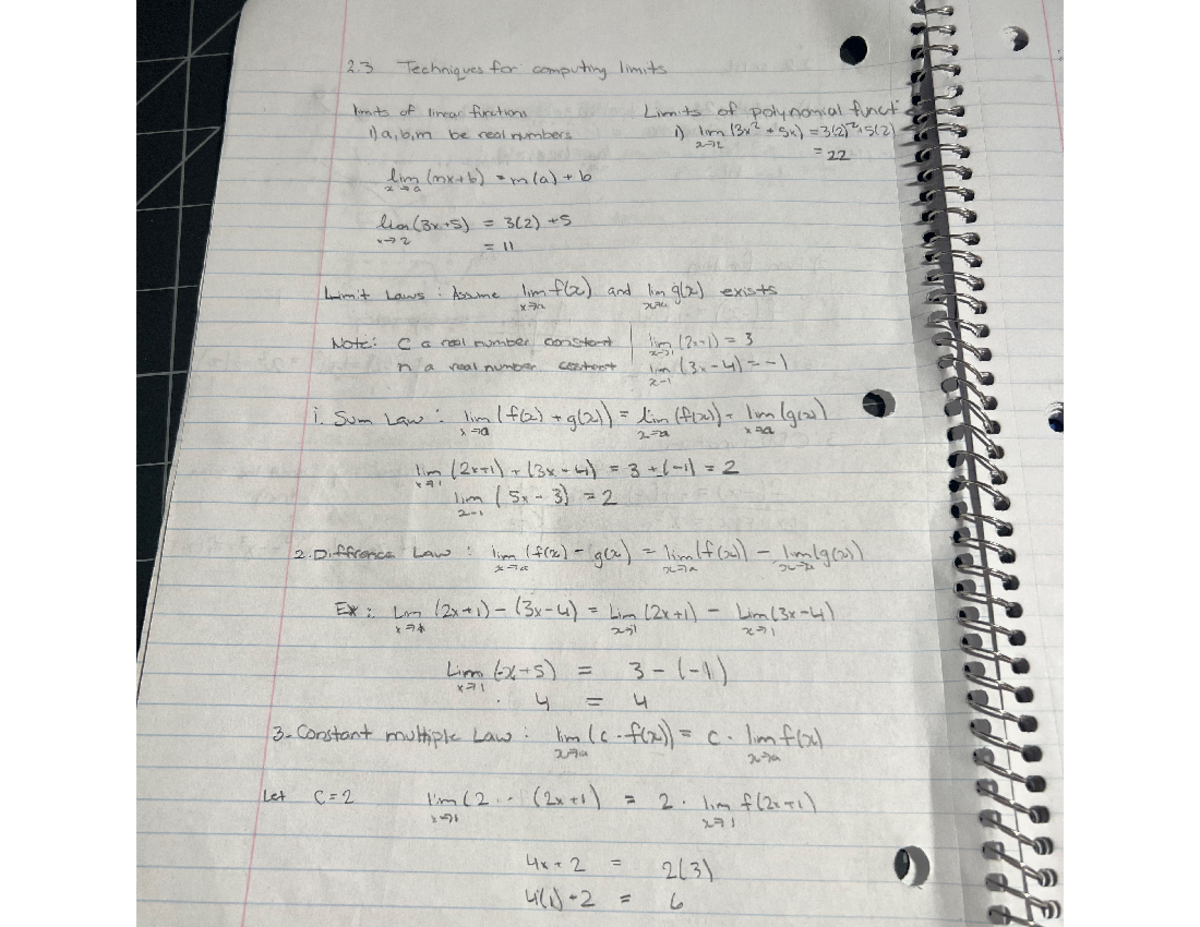 2.3 Techniques for computing limits
limits of linear functions
1) a, b, m be real numbers
lim (mx+b) = m(a) + b
x→a
lim (3x+5) = 3(2) +5
x→2
= 11
Limits of polynomial funct
1) lim (3x² + 5x) = 3(2)²+5(2)
x→2
= 22
Limit Laws : Assume lim f(x) and lim g(x) exists
x→a x→a
Note: C a real number constant
n a real number constant
lim (2x+1) = 3
x→1
lim (3x-4) = -1
x-1
1. Sum Law : lim (f(x) + g(x)) = lim (f(x)) + lim (g(x))
x→a x→a x→a
lim (2x+1) + (3x-4) = 3 + (-1) = 2
x→1
lim (5x - 3) = 2
x-1
2. Diffrence Law : lim (f(x) - g(x) = lim (f(x)) - lim (g(x))
x→a x→a x→a
Ex : Lim (2x+1) - (3x-4) = Lim (2x+1) - Lim (3x-4)
x→1 x→1 x→1
Lim (-x+5) = 3 - (-1)
x→1
4 = 4
3. Constant multiple Law : lim (c · f(x)) = c · lim f(x)
x→a x→a
Let C=2 lim (2 · (2x+1) = 2 · lim f(2x+1)
x→1 x→1
4x + 2 = 2(3)
4(1) + 2 = 6